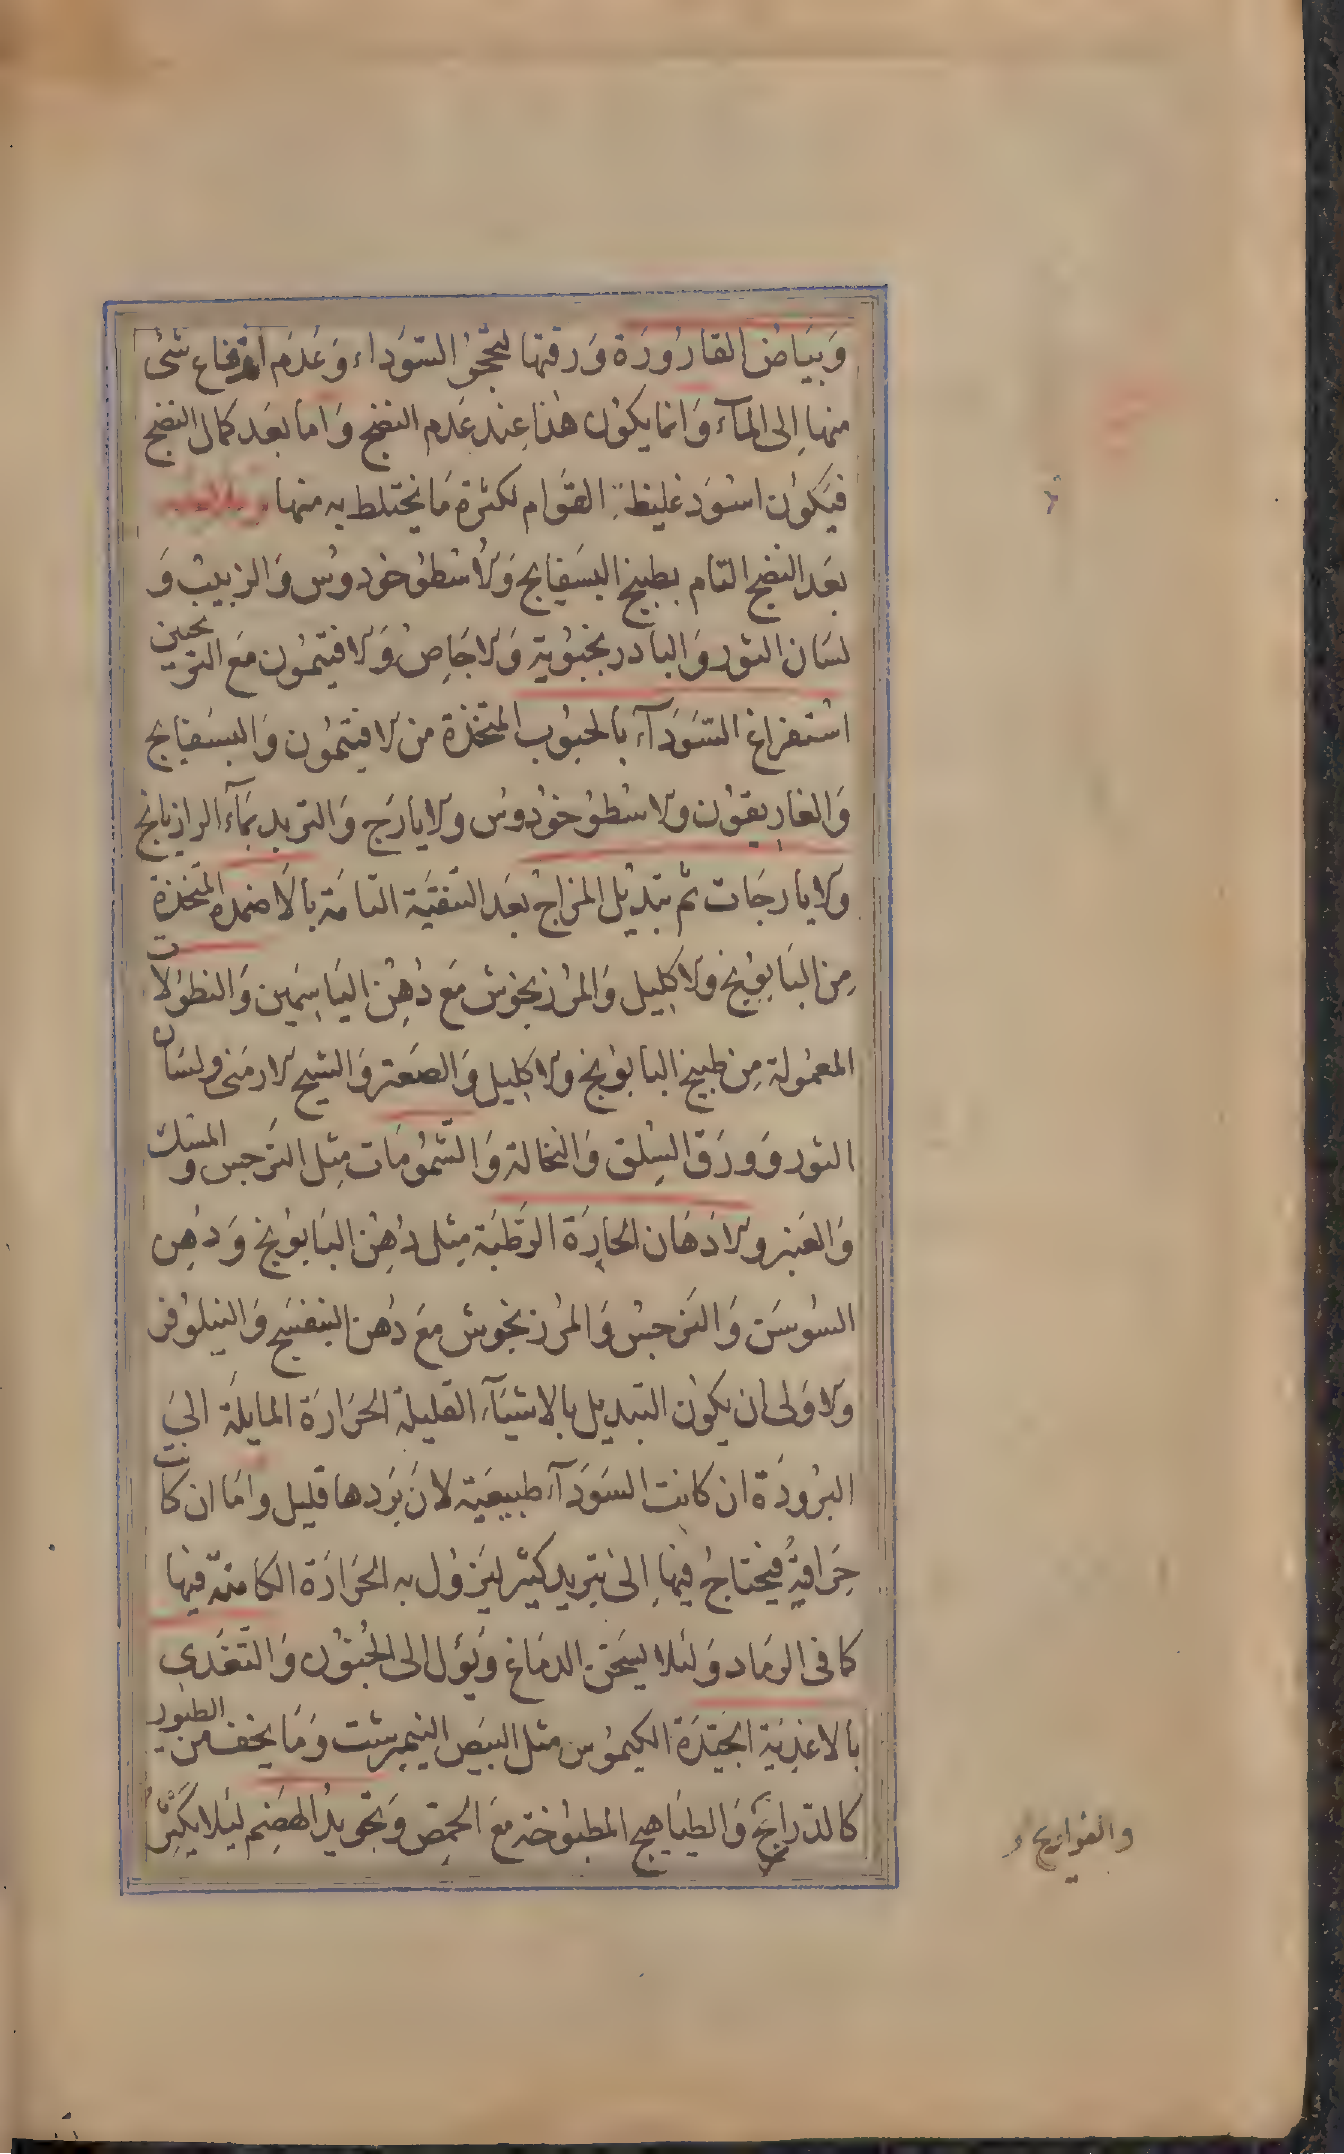 وَبيَاض القارُورَة وَرقتها لتحجّر السّوَداء وَعَدَم ارتفاع شئ
منها اِلى المآء وَانما يكوُن هٰذا عِند عَدم النضج وَاما بعَد كمال النضج
فيَكوُن اسْوَد غليظ القَوام لكثرة مَا يختلط به منها
بعَد النضج التام بطبيخ البسَفايج وَالاُسْطوُخودوسُ وَالزبيبْ وَ
لسَان الثور وَالبادر نجبوُية وَالاجَاِص وَالافتيمُون مَع الترنجبين
اسْتفراغ السَّوَدآء بالحبوُب المتخذة من الافتيموُن وَالبسَفايج
وَالغاريقوُن والاسْطوُخوُدوس والايارَج وَالتربد بمَآء الرازيانج
والايارجَات ثم تبديْل المزاج بعَد التنقيَة التامَة بالاَضمده المتّخذة
مِن البَابوُنج والاكليل وَالمرُزنجوش مَع دُهِن اليَاسِمَين وَالنطوُلات
المعموُلة مِن طبيخ البابوُنج والاكليل وَالصَعتر وَالشيح الارمَنى ولسَان
الثور وَورَق السِلق وَالنخالة وَالشّموُمَات مِثل النَرجس والمسْك
وَالعَنبر والادهَان الحارِة الرَّطبَة مِثل دُهِن البَابوُنج وَدُهِن
السُوسَن وَالنَرجسْ وَالمرُزنجوش مَع دُهن البنفسَج وَالنيلوُفر
والاوَلى ان يكوُن التبديل بالاشيَآء القليلة الحَرَارَة المايلَة الىَ
البرُودَة ان كانت السَوَدآء طبيعَية لاَنَ بَردها قليل وامَا ان كانت
حِرَاقيةً فيحتاجُ فيهَا اِلىٰ تبريد كثير ليَزوُل به الحَرَارَة الكامنة فيها
كما فى الرمَاد وَلئلا يسَخن الدمَاغ وَيوُل الى الجُنوُن وَالتّغدى
بالاغذِيَة الجَيّدَة الكيموُس مثل البيَض النيمبرشت وَمَا يخف من الطيوُر
كالدّراج وَالطيَاهيج المطبوُخة مَع الحمِصّ وَتجويدُ الهضَم لئلا يكَثرُ
والفواريج و